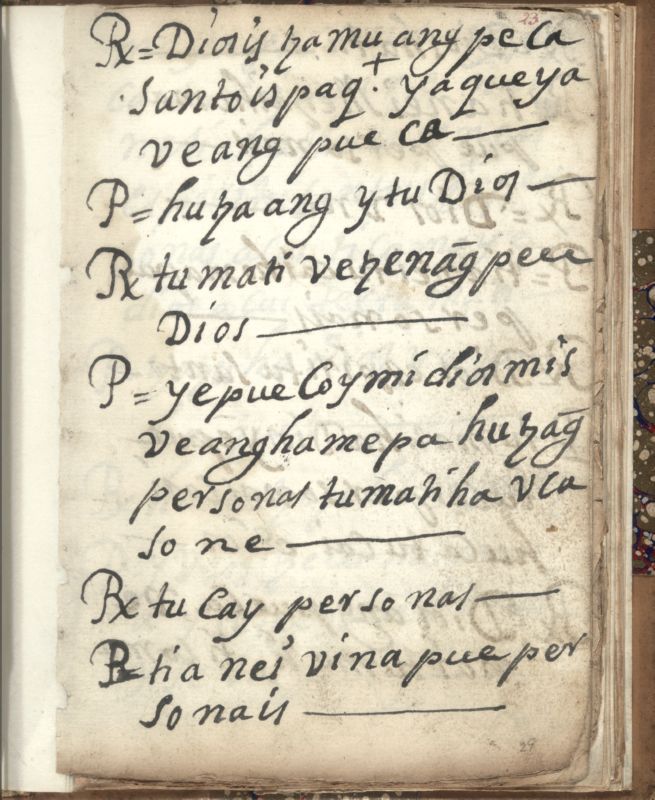 23
Rx = Diosis hamu ang peca
santoispaq. + yaqueya
ve ang pue ca
P = huhaang ytu Dios
Rx tumati vehenãg pecu
Dios
P = yepue Coymi dios mis
veanghamepa huhãg
personas tumatiha vca
sone
Rx tu Cay personas
P tia nes vina pue per
sonais
29